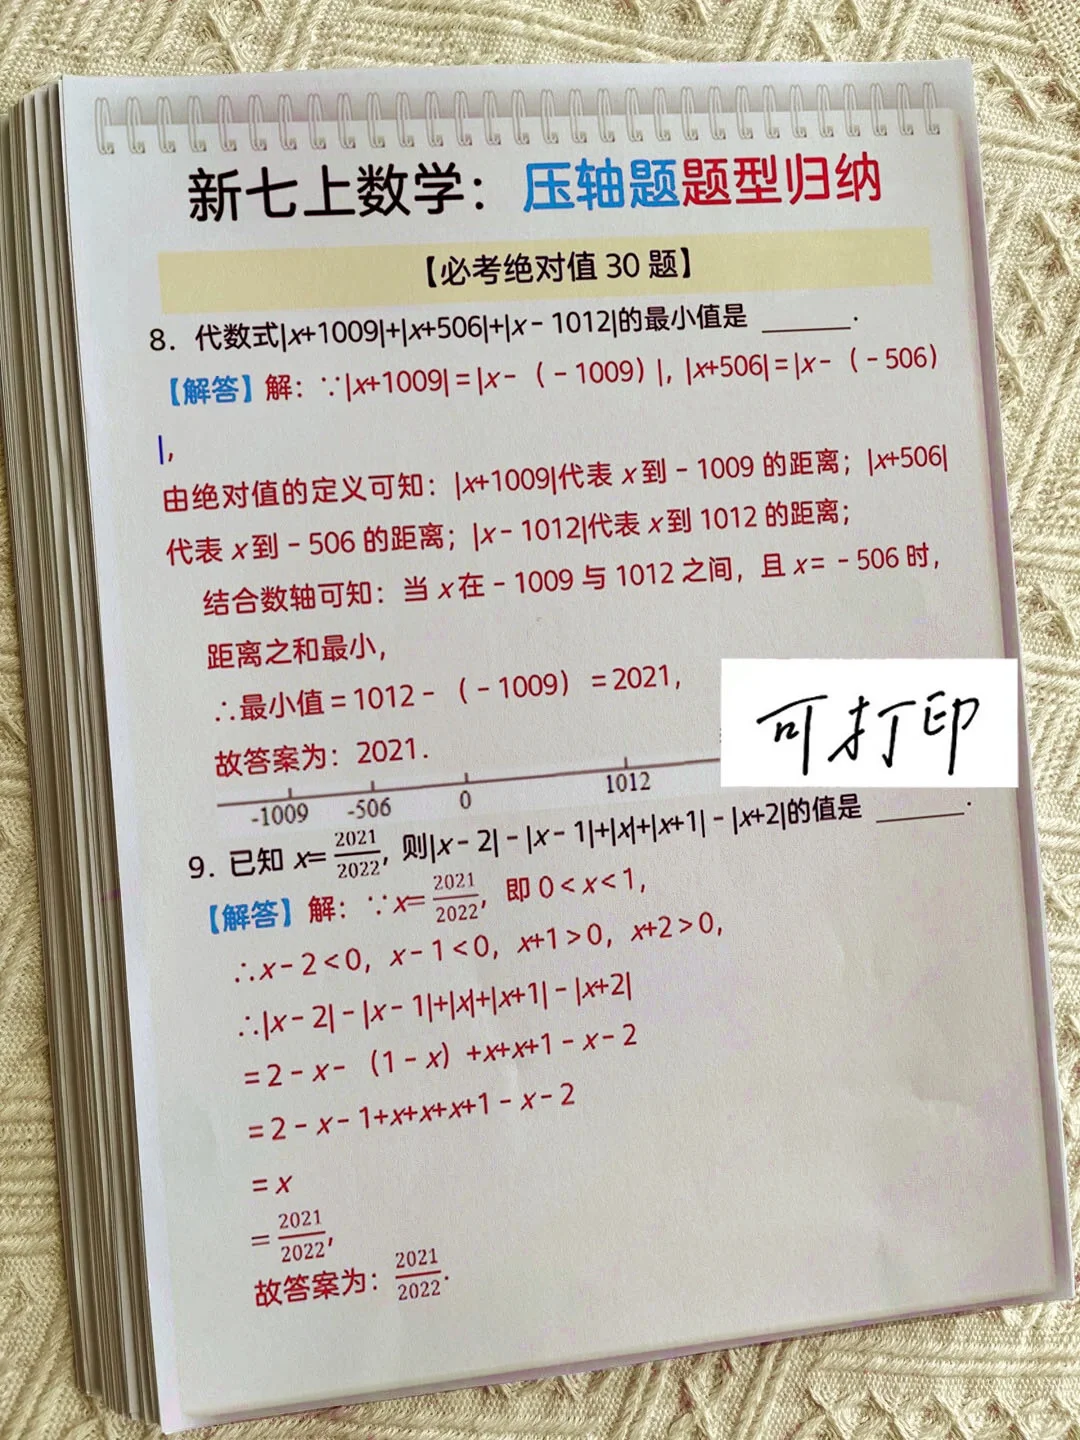 新七上数学：压轴题题型归纳
【必考绝对值 30 题】
8．代数式|x+1009|+|x+506|+|x－1012|的最小值是 ______．
【解答】解：∵|x+1009|＝|x－（－1009）|，|x+506|＝|x－（－506）
|，
由绝对值的定义可知：|x+1009|代表 x 到－1009 的距离；|x+506|
代表 x 到－506 的距离；|x－1012|代表 x 到 1012 的距离；
结合数轴可知：当 x 在－1009 与 1012 之间，且 x＝－506 时，
距离之和最小，
∴最小值＝1012－（－1009）＝2021，
故答案为：2021．
可打印
-1009 -506 0 1012
9．已知 x= 2021/2022，则|x－2|－|x－1|+|x|+|x+1|－|x+2|的值是 ______．
【解答】解：∵x= 2021/2022，即 0＜x＜1，
∴x－2＜0，x－1＜0，x+1＞0，x+2＞0，
∴|x－2|－|x－1|+|x|+|x+1|－|x+2|
＝2－x－（1－x）+x+x+1－x－2
＝2－x－1+x+x+x+1－x－2
＝x
= 2021/2022，
故答案为：2021/2022．